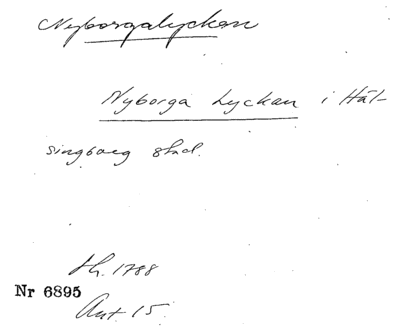 Nyborgalyckan
Nyborga Lyckan i Häl-
singborg stad.
th. 1788
Nr 6895
Ant. 15.